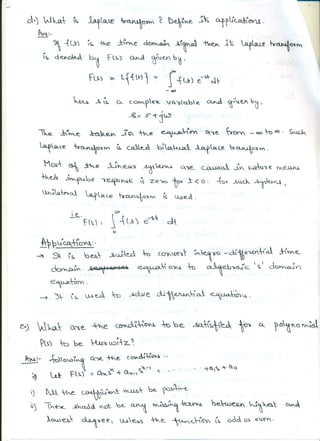 d.) What is laplace transform? Define its applications.
Ans:-
If f(t) is the time domain signal then it Laplace transform
is denoted by F(s) and given by,
F(s) = L{f(t)} = ∫_{-∞}^{∞} f(t) e^{-st} dt
here s is a complex variable and given by,
s = σ + jω
The time taken in the equation are from -∞ to ∞. Such
laplace transform is called bilateral laplace transform.
Most of the linear systems are causal in nature means
their impulse response is zero for t<0. for such systems,
unilateral Laplace transform is used.
i.e. F(s) = ∫_{0}^{∞} f(t) e^{-st} dt
Applications:-
→ It is best suited to convert integro-differential time
domain equations to algebraic 's' domain
equation.
→ It is used to solve differential equations.
e.) What are the conditions to be satisfied for a polynomial
P(s) to be Hurwitz?
Ans:- following are the conditions :-
Let F(s) = a_n s^n + a_{n-1} s^{n-1} + ---------- + a_1 s + a_0
i) All the coefficient must be positive
ii) There should not be any missing terms between highest and
lowest degree, unless the function is odd or even.